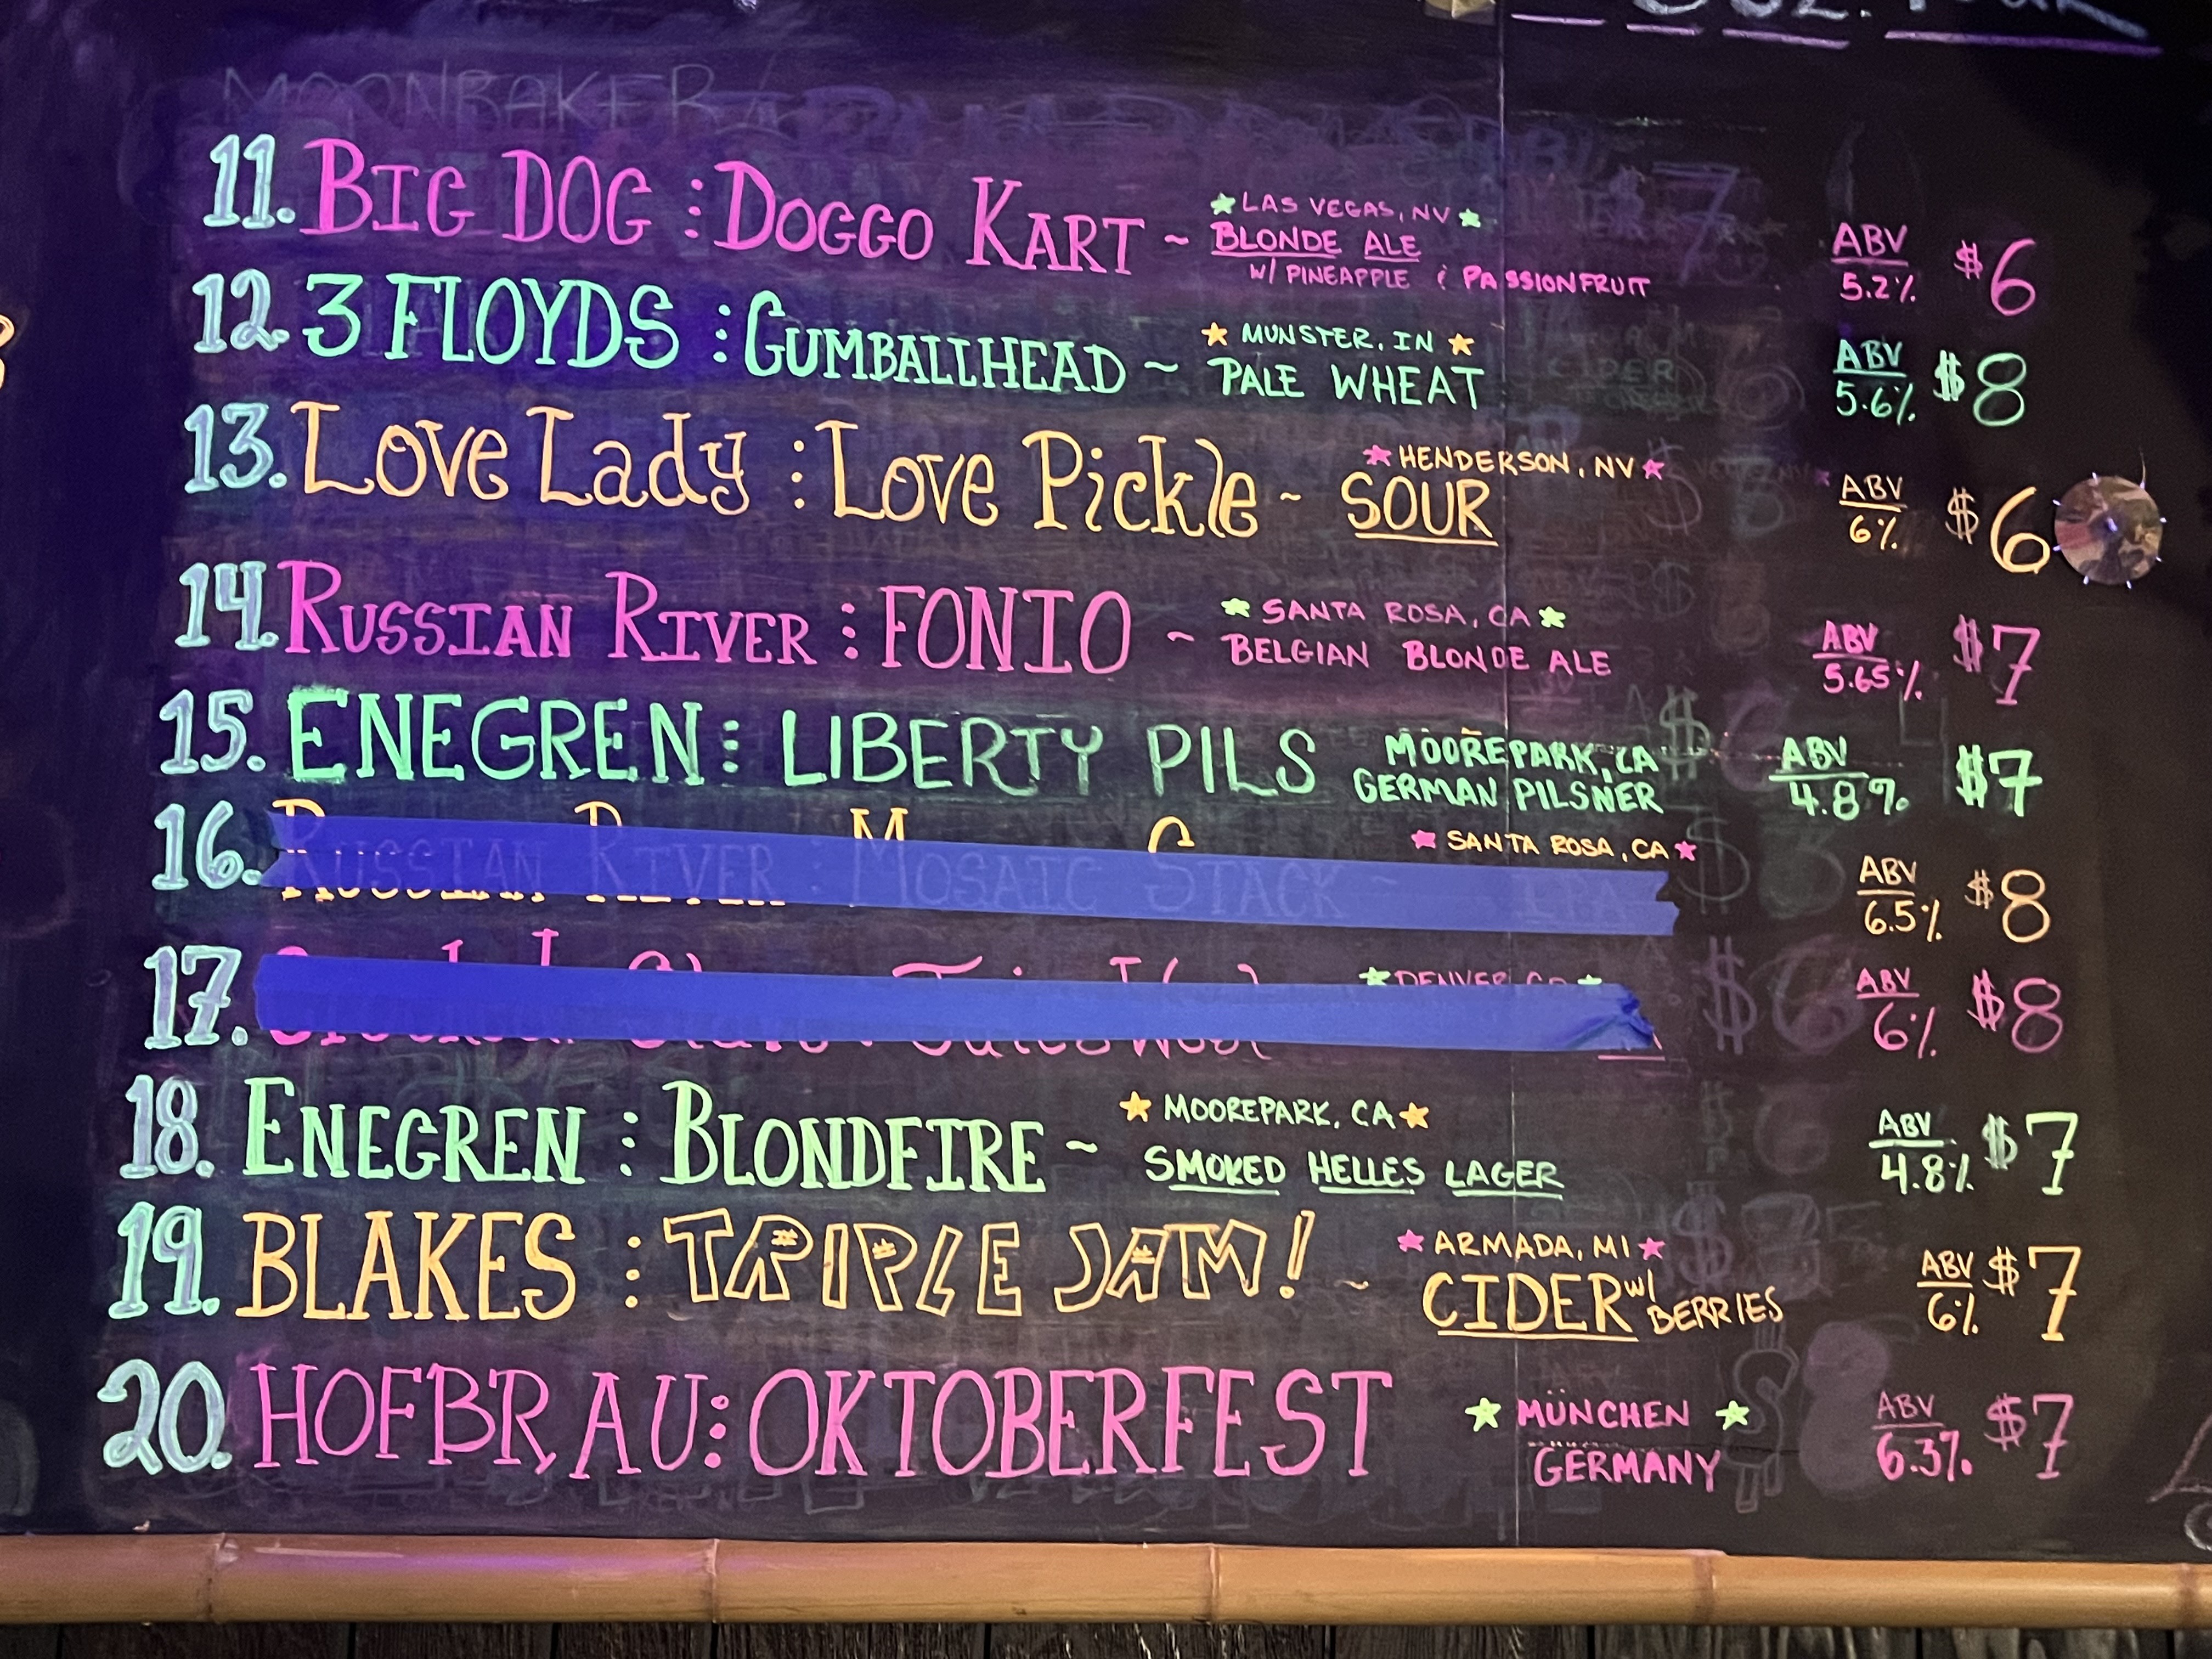 11. BIG DOG : DOGGO KART ~ LAS VEGAS, NV
BLONDE ALE
W/ PINEAPPLE & PASSIONFRUIT
ABV 5.2% $6
12. 3 FLOYDS : GUMBALLHEAD ~ MUNSTER, IN
PALE WHEAT
ABV 5.6% $8
13. Love Lady : Love Pickle ~ HENDERSON, NV
SOUR
ABV 6% $6
14. RUSSIAN RIVER : FONIO ~ SANTA ROSA, CA
BELGIAN BLONDE ALE
ABV 5.65% $7
15. ENEGREN : LIBERTY PILS MOOREPARK, CA
GERMAN PILSNER
ABV 4.8% $7
16. RUSSIAN RIVER : MOSAIC STACK ~ SANTA ROSA, CA
IPA
ABV 6.5% $8
17. DENVER, CO
ABV 6% $8
18. ENEGREN : BLONDFIRE ~ MOOREPARK, CA
SMOKED HELLES LAGER
ABV 4.8% $7
19. BLAKES : TRIPLE JAM! ~ ARMADA, MI
CIDER w/ BERRIES
ABV 6% $7
20. HOFBRAU : OKTOBERFEST MÜNCHEN
GERMANY
ABV 6.3% $7